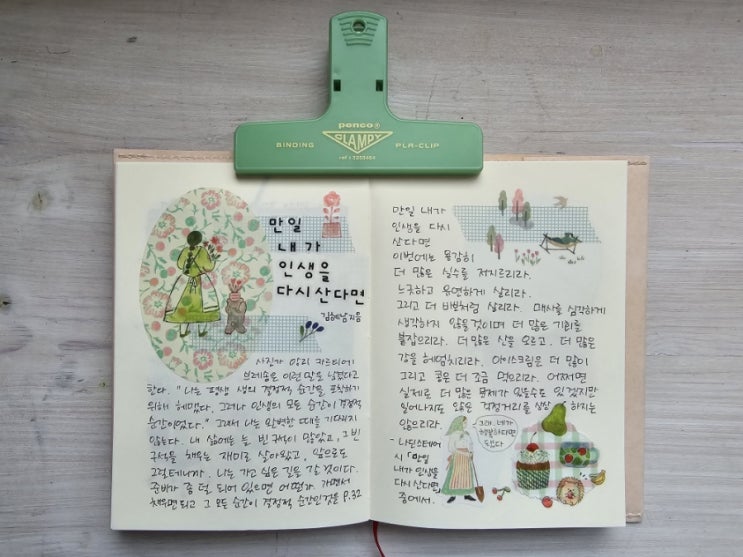 penco®
CLAMPY
BINDING
PLA-CLIP
만일
내가
인생을
다시 산다면
김혜남 지음
사진가 앙리 카르티에
브레송은 이런 말을 남겼다고
한다. "나는 평생 생의 결정적 순간을 포착하기
위해 헤맸다. 그러나 인생의 모든 순간이 결정적
순간이었다." 그래서 나는 완벽한 때를 기다리지
않는다. 내 삶에는 늘 빈 구석이 많았고, 그 빈
구석을 채우는 재미로 살아왔고, 앞으로도
그럴 테니까. 나는 가고 싶은 길을 갈 것이다.
준비가 좀 덜 되어 있으면 어떤가. 가면서
채우면 되고 그 모든 순간이 결정적 순간인 것을 P.32
만일 내가
인생을 다시
산다면
이번에는 용감히
더 많은 실수를 저지르리라.
느긋하고 유연하게 살리라.
그리고 더 바보처럼 살리라. 매사를 심각하게
생각하지 않을 것이며 더 많은 기회를
붙잡으리라. 더 많은 산을 오르고, 더 많은
강을 헤엄치리라. 아이스크림은 더 많이
그리고 콩은 더 조금 먹으리라. 어쩌면
실제로 더 많은 문제가 있을 수도 있겠지만
일어나지도 않은 걱정거리를 상상하지는
않으리라.
그래, 네가
행복하다면
됐다
- 나딘 스테어
시 「만일
내가 인생을
다시 산다면
중에서.